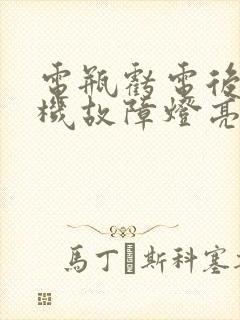 電瓶虧電後
機故障燈亮
馬丁 斯科塞